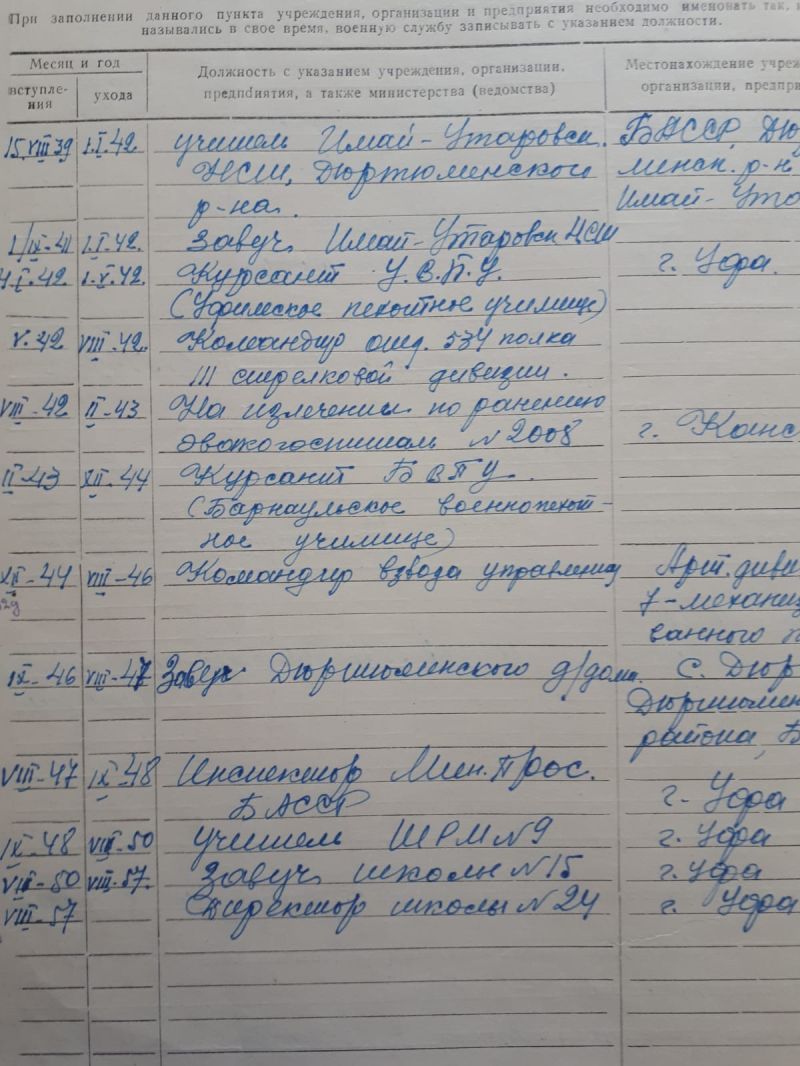 При заполнении данного пункта учреждения, организации и предприятия необходимо именовать так,
назывались в свое время, военную службу записывать с указанием должности.
Месяц и год
вступле-
ния
ухода
Должность с указанием учреждения, организации,
предприятия, а также министерства (ведомства)
Местонахождение учреж
организации, предпри
15.VIII 39 1.I.42. учитель Имай-Утаровск. БАССР, Дю
НСШ, Дюртюменского минск. р-н
р-на. Имай-Ута
1/IX-41 1.I.42. Завуч Имай-Утаровск НСШ
4.I.42. 1.V.42. Курсант У.В.П.У. г. Уфа.
(Уфимское пехотное училище)
V.42 VIII-42. Командир отд. 534 полка
III стрелковой дивизии.
VIII-42 II-43 На излечении по ранению
эвакогоспиталь №2008 г. Канс
II-43 XII-44 Курсант БВПУ.
(Барнаульское военнопехот-
ное училище)
XII-44 VIII-46 Командир взвода управления Арт. диви
7-механизи
ванного п
IX-46 VIII-47 Завуч Дюртюлинского д/дома. С. Дюр
Дюртюлин
района, Б
VIII-47 IX-48 Инспектор Мин. Прос.
БАССР г. Уфа
IX-48 VIII-50 учитель ШРМ №9 г. Уфа
VIII-50 VIII-57. Завуч школы №15 г. Уфа
VIII-57 Директор школы №24 г. Уфа